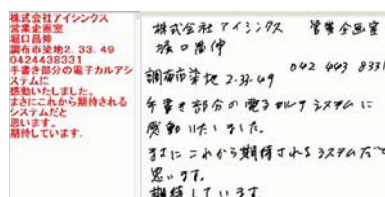 株式会社アイシンクス
営業企画室
堀口昌伸
調布市染地2. 33. 49
0424438331
手書き部分の電子カルアシ
ステムに
感動いたしました。
まさにこれから期待される
システムだと
思います。
期待しています.
株式会社アイシンクス 営業企画室
堀口昌伸
042 443 8331
調布市染地 2-33-49
手書き部分の電子カルテシステムに
感動いたしました。
まさにこれから期待されるシステムだと
思います。
期待しています。